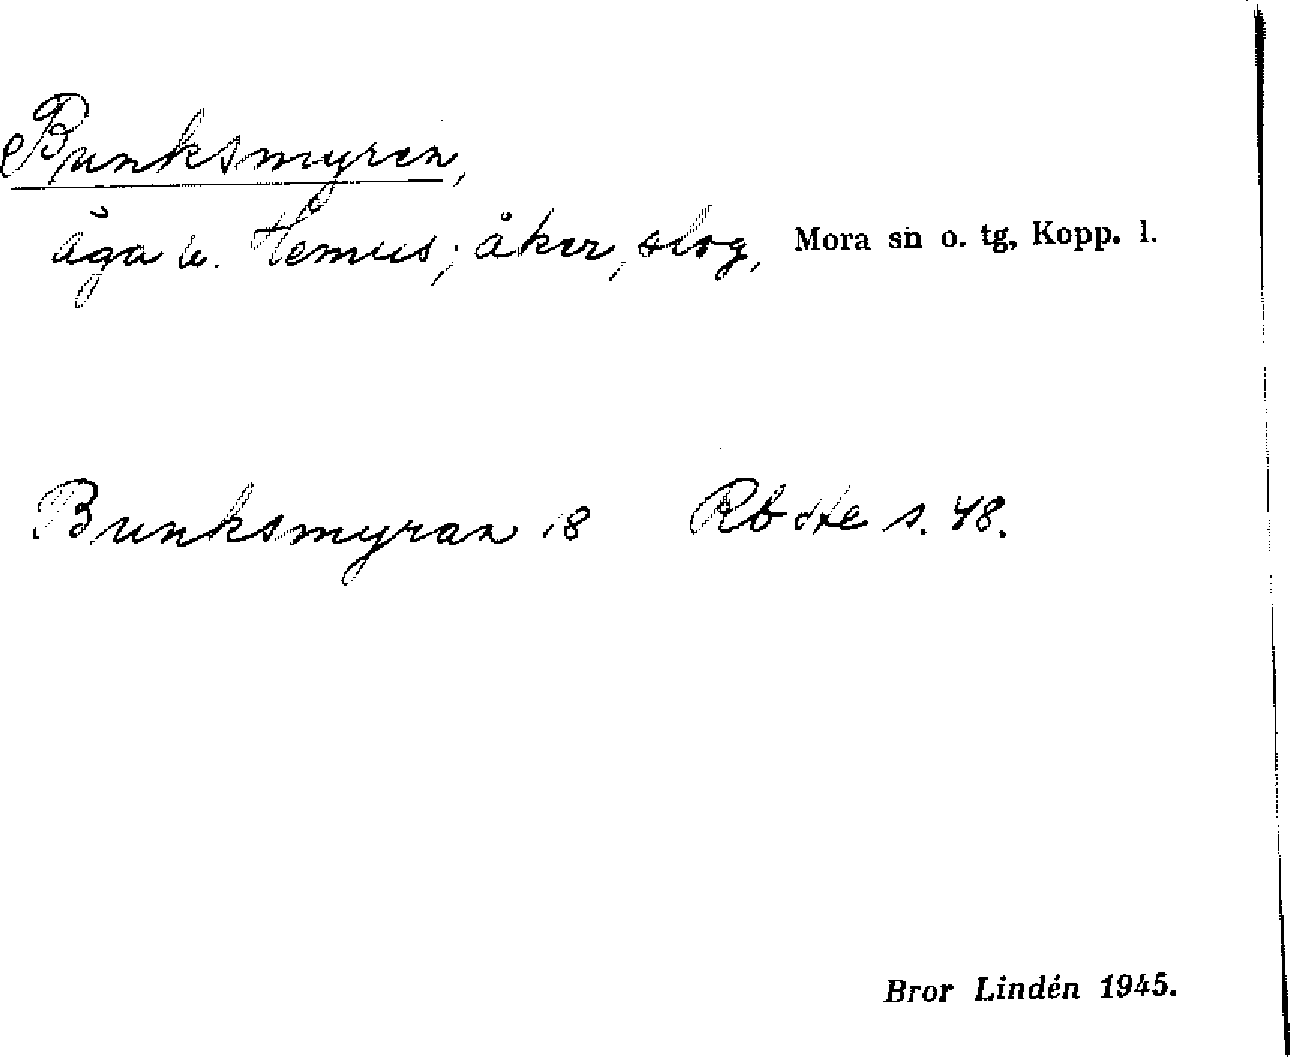 Bunksmyren,
äga u. Hemus; åker, slog, Mora sn o. tg, Kopp. l.
Bunksmyran 18 Rb ste s. 48.
Bror Lindén 1945.